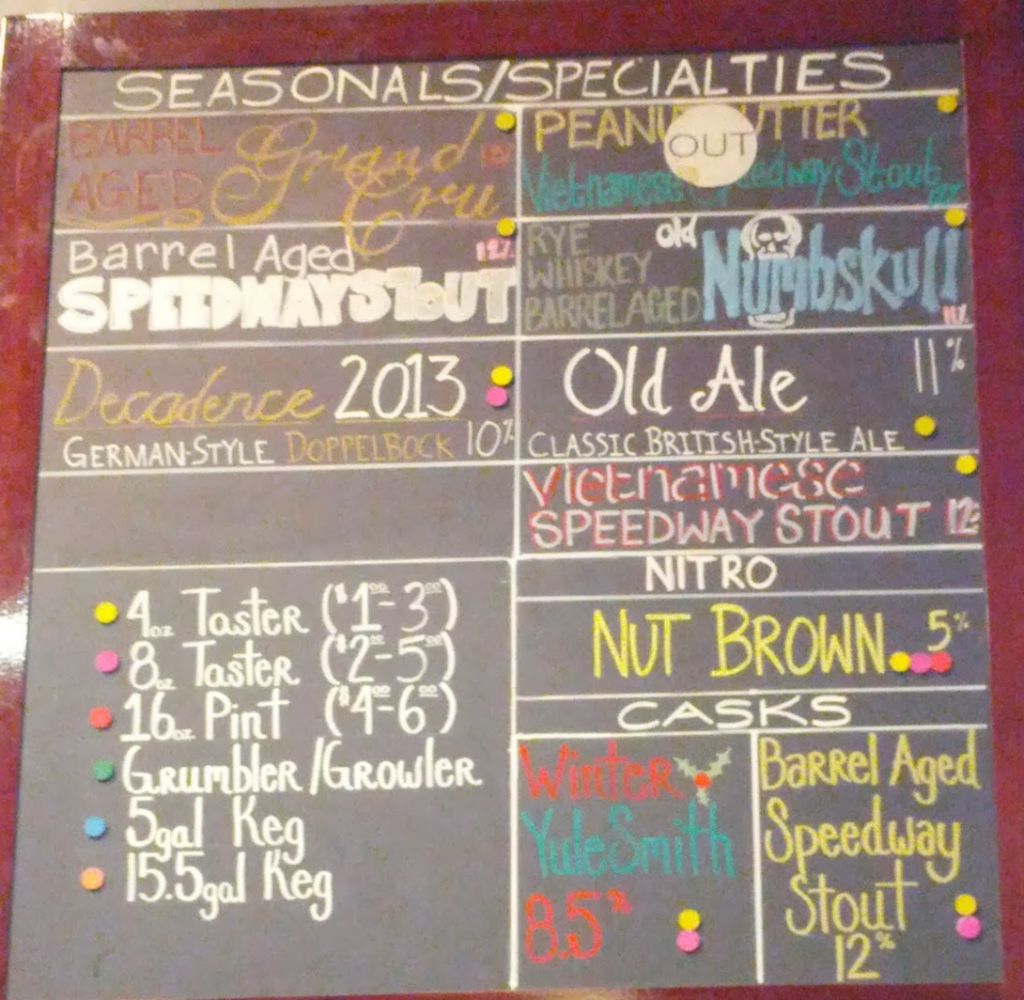 SEASONALS/SPECIALTIES
BARREL AGED Grand Cru
Barrel Aged 12%
SPEEDWAY STOUT
Decadence 2013
GERMAN-STYLE DOPPELBOCK 10%
PEANU UTTER
OUT
Vietnamese peedway Stout
RYE WHISKEY BARREL AGED old Numbskull 11%
Old Ale 11%
CLASSIC BRITISH-STYLE ALE
Vietnamese
SPEEDWAY STOUT 12%
NITRO
NUT BROWN 5%
CASKS
Winter
YuleSmith
8.5%
Barrel Aged
Speedway
Stout
12%
4oz Taster ($1.00-3.00)
8oz Taster ($2.00-5.00)
16oz Pint ($4.00-6.00)
Grumbler/Growler
5gal Keg
15.5gal Keg